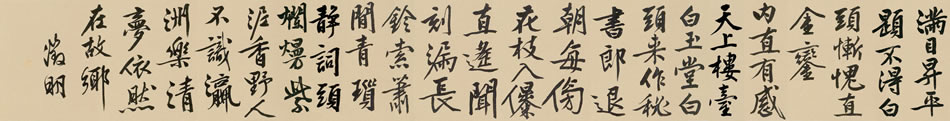 滿目昇平
題不得白
頭慚愧直
金鑾
内直有感
天上樓臺
白玉堂白
頭來作秘
書郎退
朝每傍
花枝入儤
直遙聞
刻漏長
鈴索蕭
閒青瑣
靜詞頭
爛熳紫
泥香野人
不識瀛
洲樂清
夢依然
在故鄉
徵明